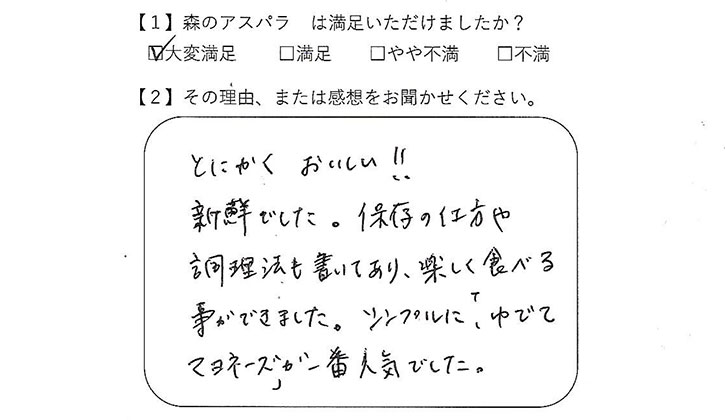 【1】森のアスパラ　は満足いただけましたか？
☑大変満足　□満足　□やや不満　□不満
【2】その理由、または感想をお聞かせください。
とにかく おいしい!!
新鮮でした。保存の仕方や
調理法も書いてあり、楽しく食べる
事ができました。シンプルに「、ゆでて
マヨネーズ」が一番人気でした。